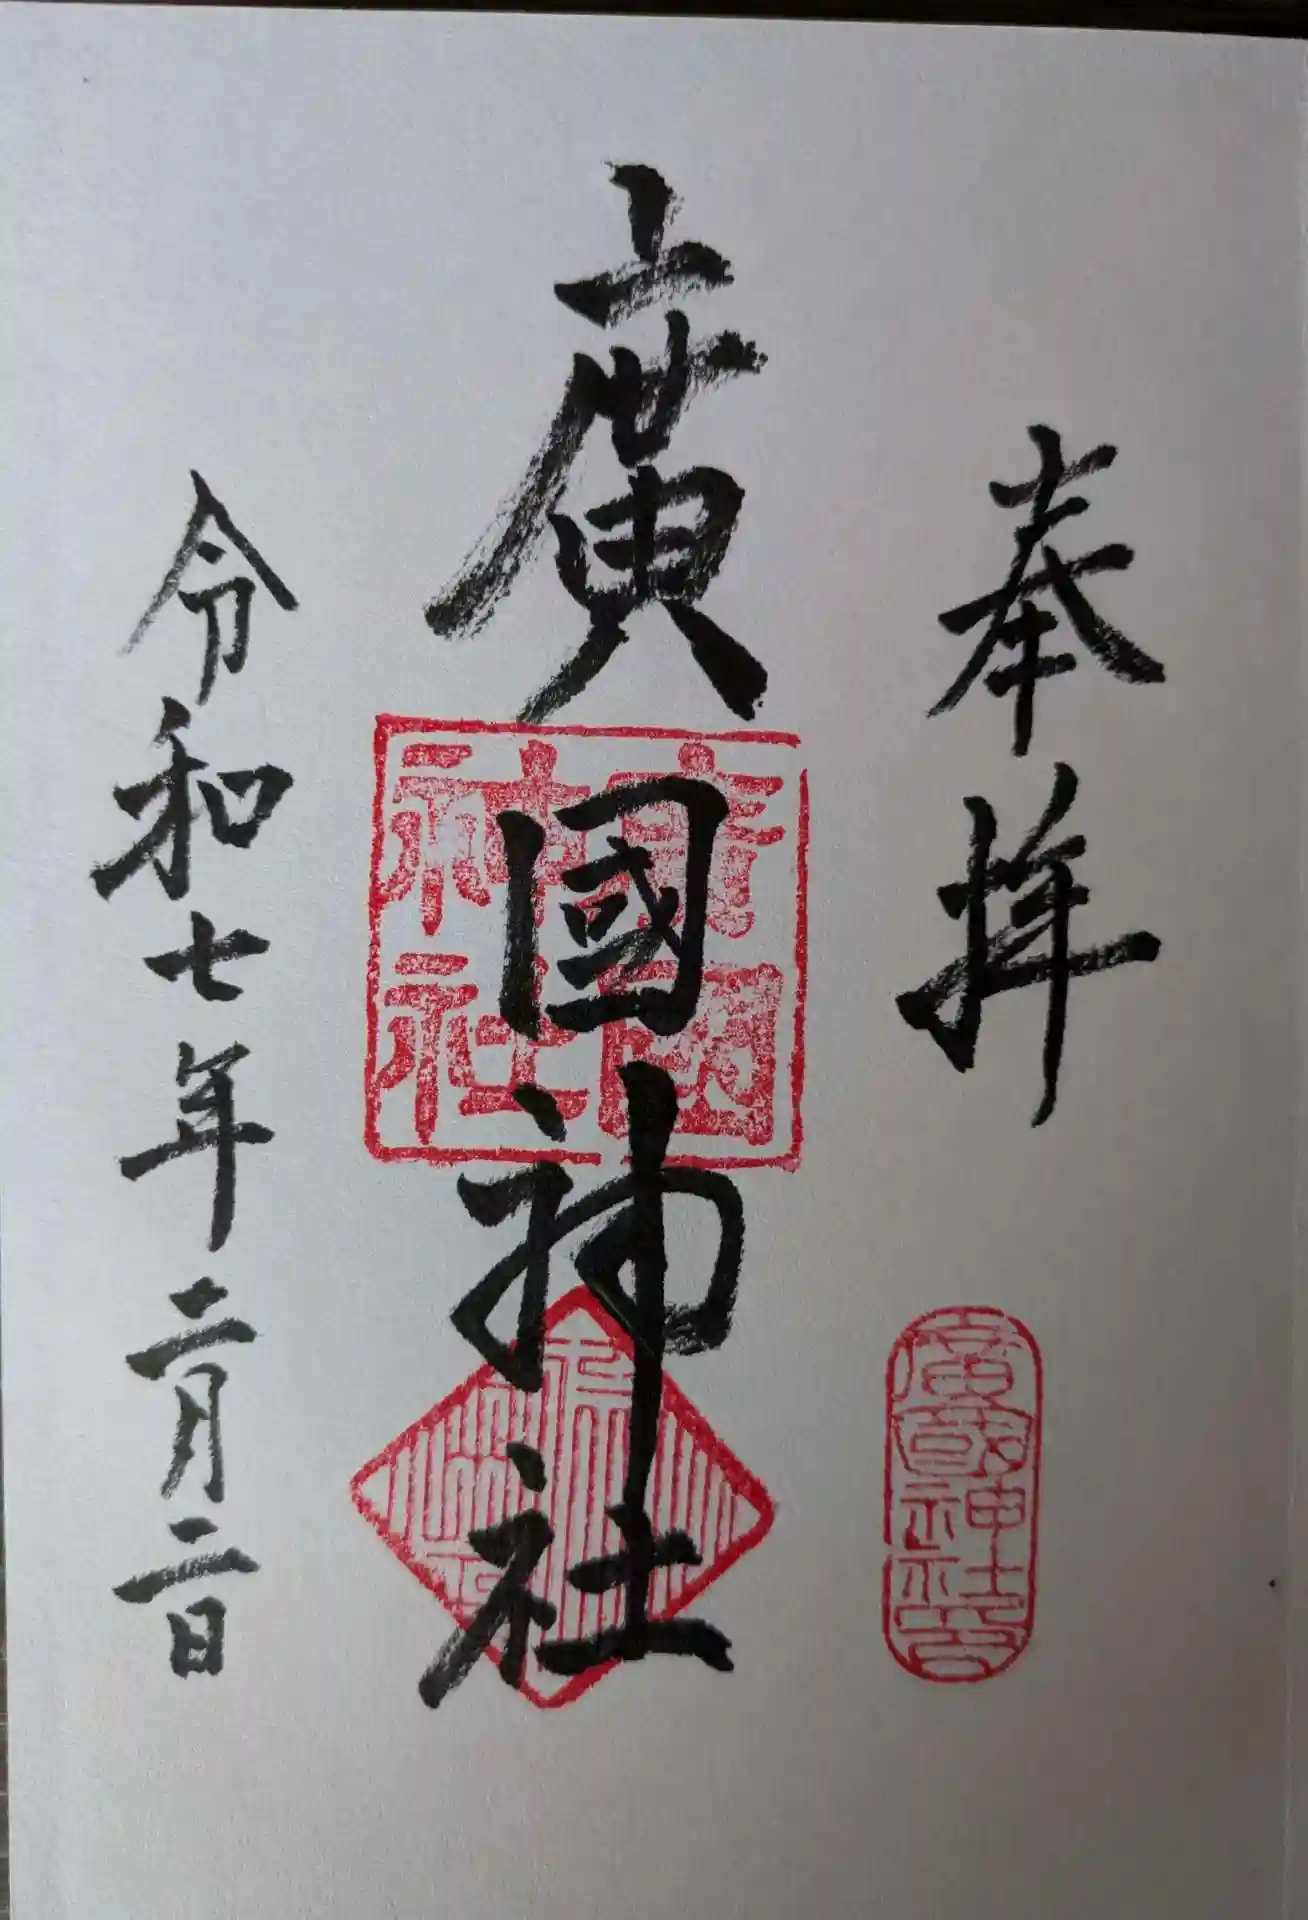 奉拝
廣國神社
廣國神社
廣國神社
令和七年二月二日